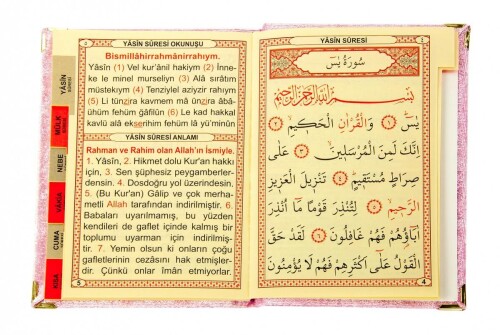 YÂSÎN SÛRESİ OKUNUŞU
Bismillâhirrahmânirrahıym.
Yâsîn (1) Vel kur'ânil hakiym (2) İnne-
ke le minel murseliyn (3) Alâ sırâtım
müstekıym (4) Tenziylel aziyzir rahıym
(5) Li tünzira kavmem mâ ünzira âbâ-
ühüm fehüm ğâfilûn (6) Le kad hakkal
kavlü alâ ekserihim fehüm lâ yü'minûn
YÂSÎN SÛRESİ ANLAMI
Rahman ve Rahim olan Allah'ın İsmiyle.
1. Yâsîn, 2. Hikmet dolu Kur'an hakkı
için, 3. Sen şüphesiz peygamberler-
densin. 4. Dosdoğru yol üzerindesin.
5. (Bu Kur'an) Gâlip ve çok merha-
metli Allah tarafından indirilmiştir. 6.
Babaları uyarılmamış, bu yüzden
kendileri de gaflet içinde kalmış bir
toplumu uyarman için indirilmiş-
tir. 7. Yemin olsun ki onların çoğu
gafletlerinin cezâsını hak etmişler-
dir. Çünkü onlar îman etmiyorlar.
5
YÂSÎN
SÛRESİ
MÜLK
NEBE
VÂKIA
CUMA
KISA
YÂSÎN SÛRESİ
سُورَةُ يٰسٓ
بِسْمِ اللّٰهِ الرَّحْمٰنِ الرَّحِيمِ
يٰسٓ ﴿١﴾ وَالْقُرْاٰنِ الْحَكِيمِ ﴿٢﴾
اِنَّكَ لَمِنَ الْمُرْسَلِينَ ﴿٣﴾ عَلٰى
صِرَاطٍ مُسْتَقِيمٍ ﴿٤﴾ تَنْزِيلَ الْعَزِيزِ
الرَّحِيمِ ﴿٥﴾ لِتُنْذِرَ قَوْمًا مَٓا اُنْذِرَ
اٰبَٓاؤُهُمْ فَهُمْ غَافِلُونَ ﴿٦﴾ لَقَدْ حَقَّ
الْقَوْلُ عَلٰٓى اَكْثَرِهِمْ فَهُمْ لَا يُؤْمِنُونَ
4